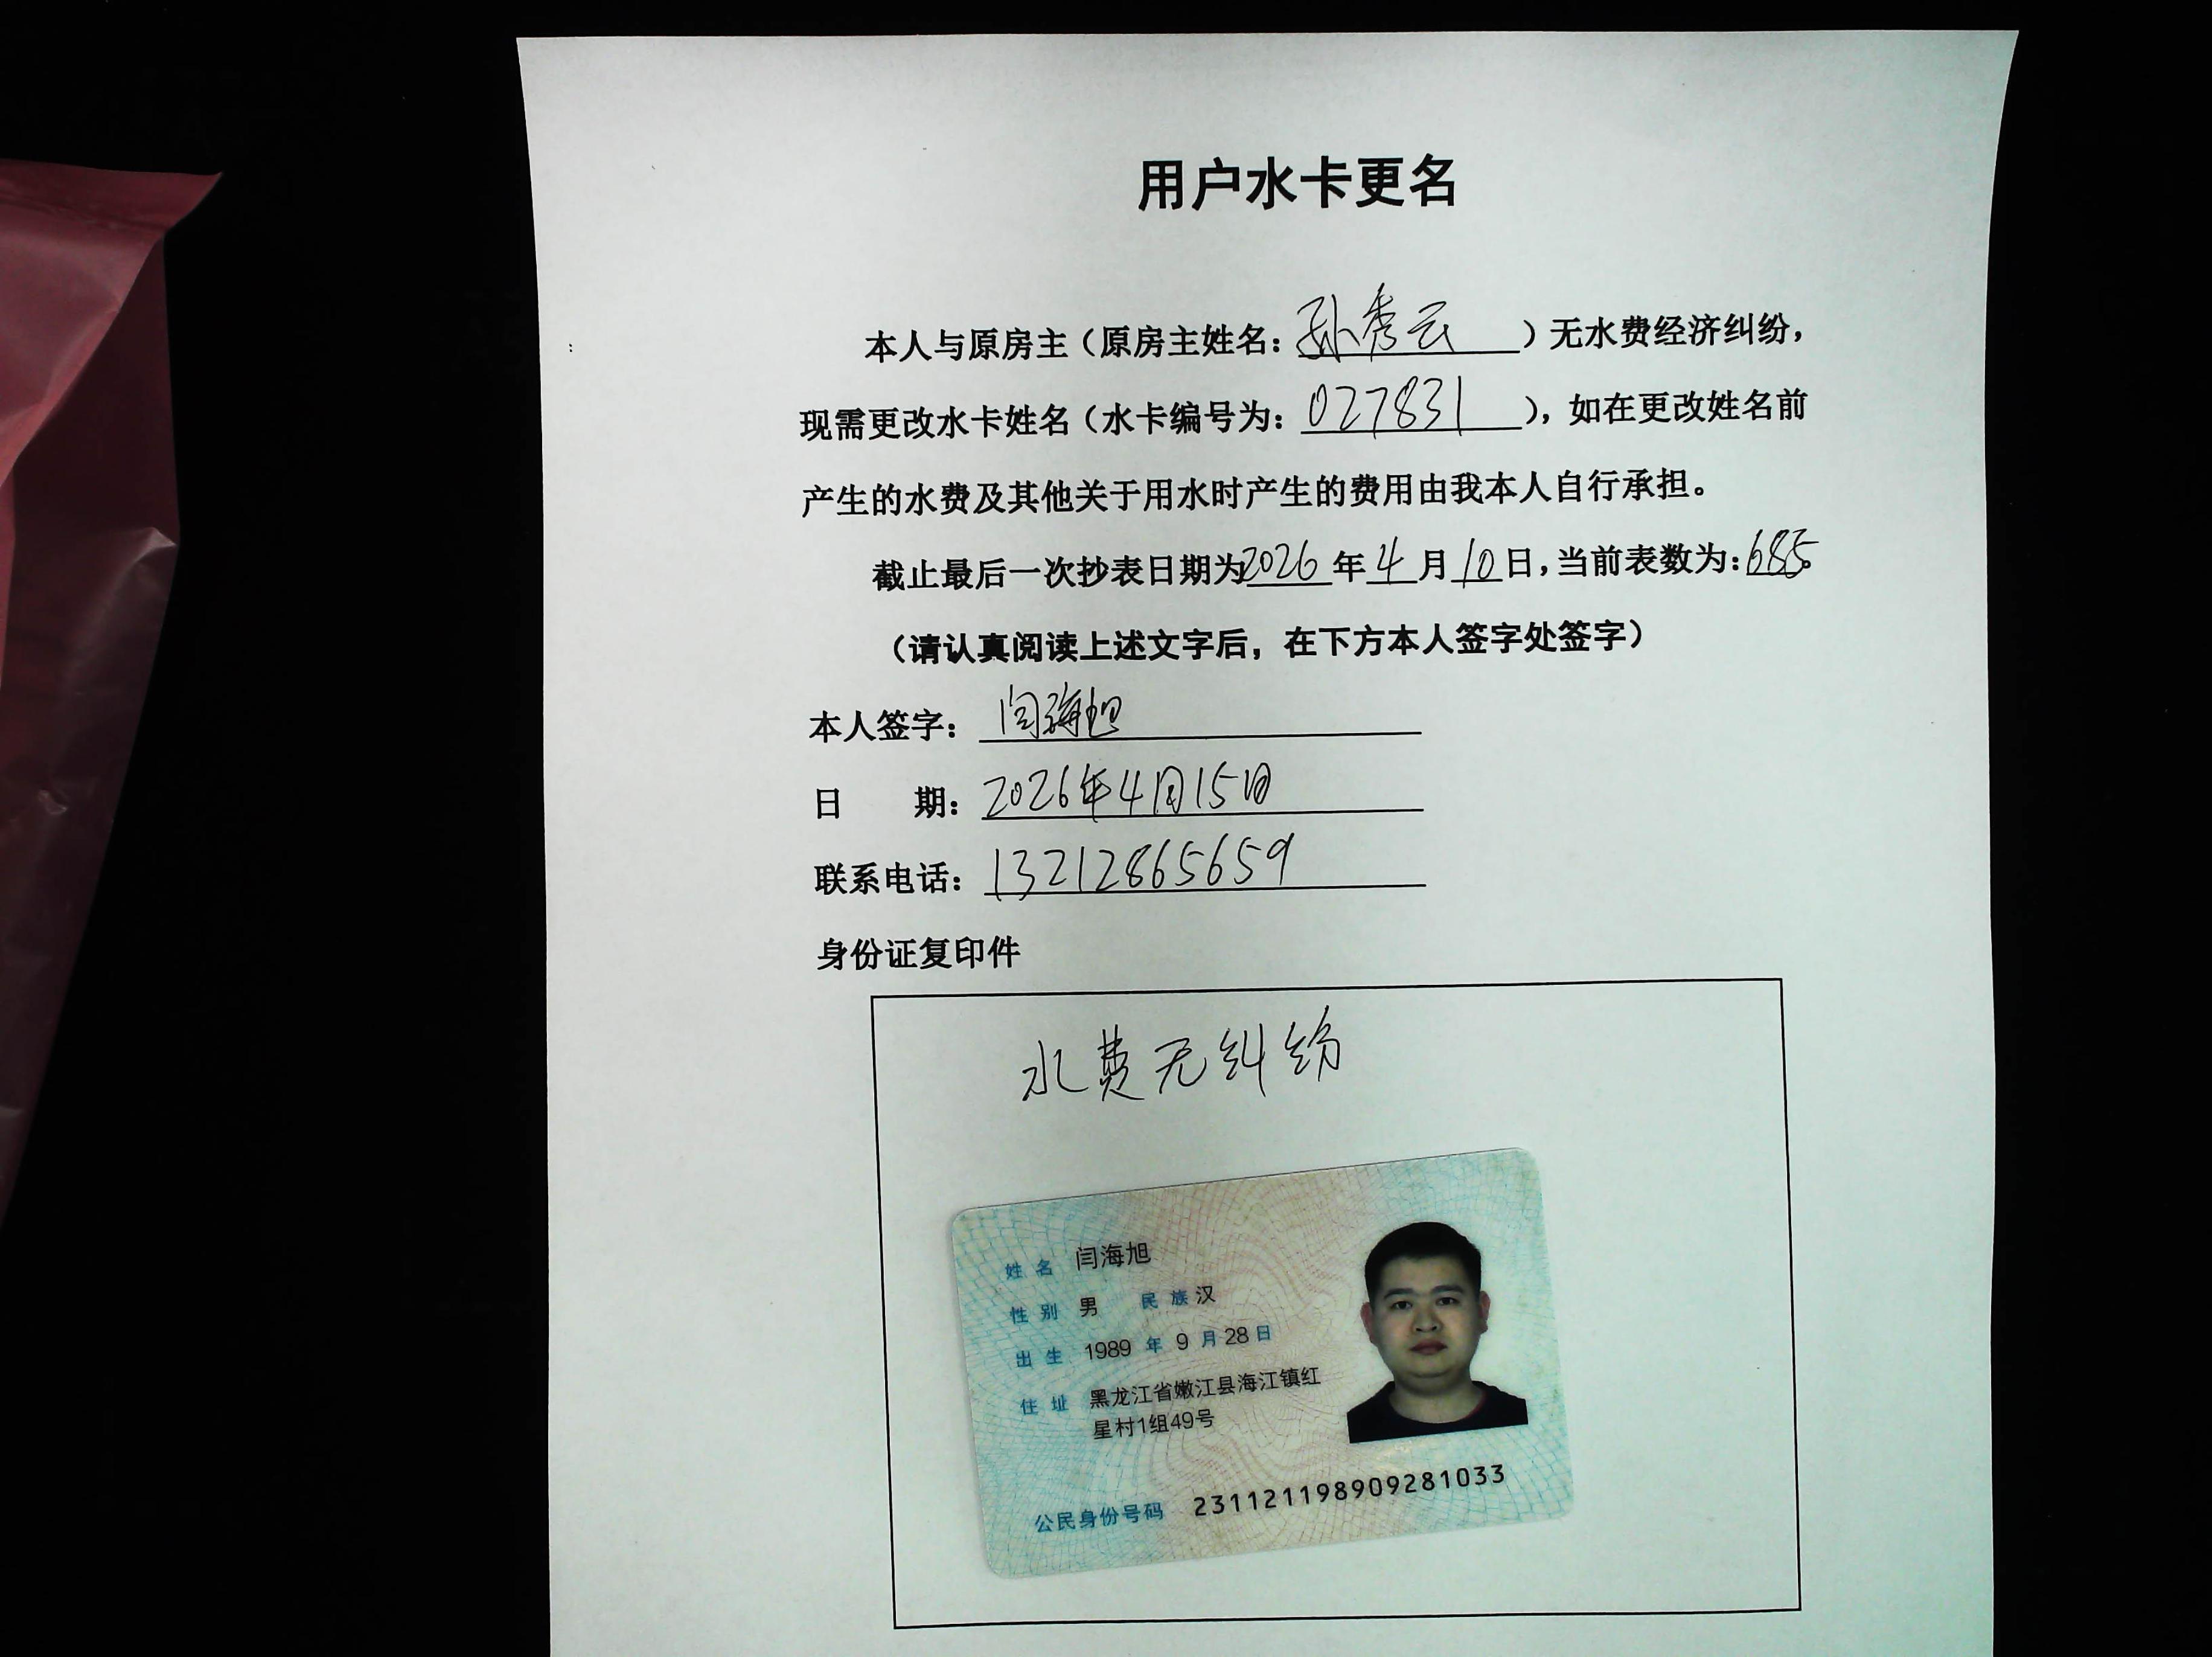 用户水卡更名
本人与原房主（原房主姓名：孙秀云）无水费经济纠纷，
现需更改水卡姓名（水卡编号为：027831），如在更改姓名前
产生的水费及其他关于用水时产生的费用由我本人自行承担。
截止最后一次抄表日期为2026年4月10日，当前表数为：685。
（请认真阅读上述文字后，在下方本人签字处签字）
本人签字：闫海旭
日 期：2026年4月15日
联系电话：13212865659
身份证复印件
水费无纠纷
姓名 闫海旭
性别 男 民族 汉
出生 1989 年 9 月 28 日
住址 黑龙江省嫩江县海江镇红
星村1组49号
公民身份号码 231121198909281033